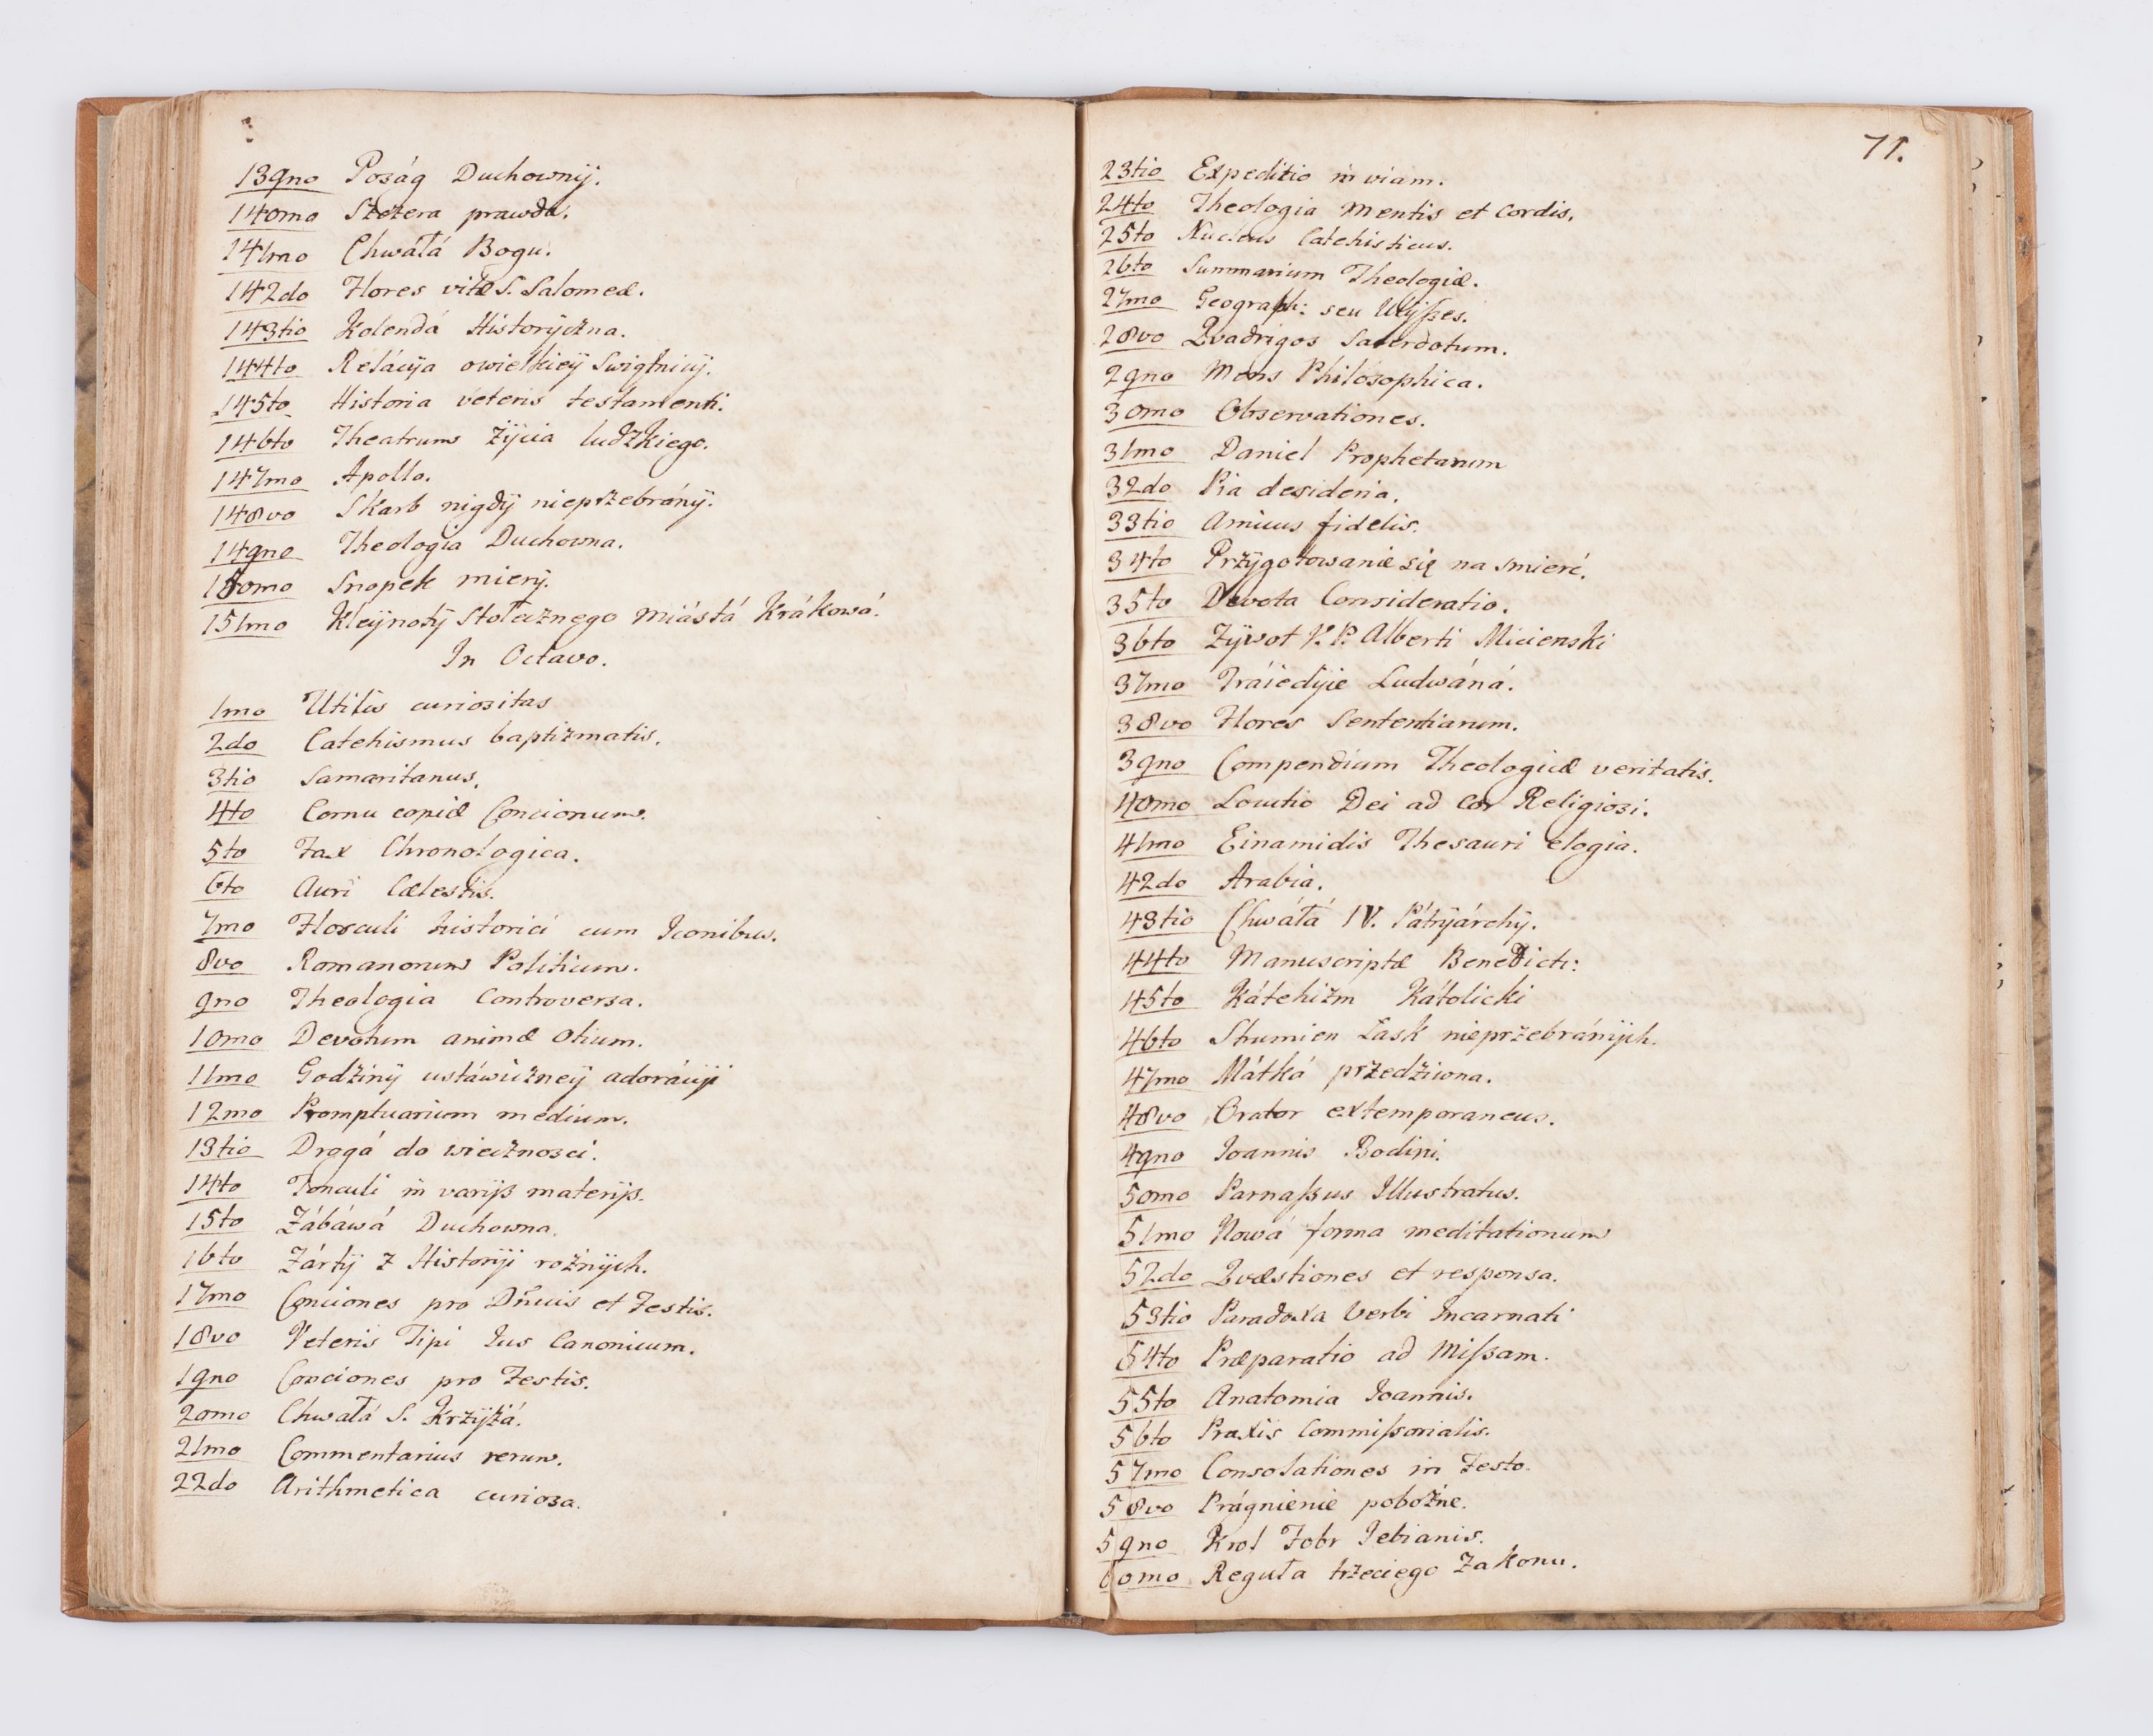 139no Poság Duchownÿ.
140mo Szczera prawda.
141mo Chwáłá Bogu.
142do Flores vitæ S. Salomeæ.
143tio Kolendá Historÿczna.
144to Relácÿa owielkieÿ Swiątnicÿ.
145to Historia veteris testamenti.
146to Theatrum żÿcia ludzkiego.
147mo Apollo.
148vo Skarb nigdÿ nieprzebránÿ.
149no Theologia Duchowna.
150mo Snopek mierÿ.
151mo Kleÿnotÿ Stołecznego Miástá Krákowá.
In Octavo.
1mo Utilis curiositas
2do Catehismus baptizmatis.
3tio Samaritanus.
4to Cornu copiæ Concionum.
5to Fax Chronologica.
6to Auri Cælestis.
7mo Flosculi historici cum Iconibus.
8vo Romanorum Politicum.
9no Theologia Controversa.
10mo Devotum animæ Otium.
11mo Godzinÿ ustáwiczneÿ adorácÿi
12mo Promptuarium medium.
13tio Drogá do wiecznosci.
14to in varijs materijs.
15to Zábáwá Duchowna.
16to Żártÿ z Historÿi rożnÿch.
17mo Conciones pro Dn̄icis et Festis.
18vo Veteris Tipi Ius Canonicum.
19no Conciones pro Festis.
20mo Chwałá S. Krzÿżá.
21mo Commentarius rerum.
22do Arithmetica curiosa.
71.
23tio Expeditio in viam.
24to Theologia Mentis et Cordis.
25to Nucleus Catehisticus.
26to Summarium Theologiæ.
27mo Geograph: seu Ulÿsses.
28vo Qvadrigos Sacerdotum.
29no Mons Philosophica.
30mo Observationes.
31mo Daniel Prophetarum
32do Pia desideria.
33tio Amicus fidelis.
34to Przÿgotowanie się na smierć.
35to Devota Consideratio.
36to Zÿwot V. P. Alberti Micienski
37mo Tráiedÿie Ludwáná.
38vo Flores Sententiarum.
39no Compendium Theologicæ veritatis.
40mo Locutio Dei ad Cor Religiosi.
41mo Einamidis Thesauri elogia.
42do Arabia.
43tio Chwáłá IV. Pátrÿárchÿ.
44to Manuscriptæ Benedicti:
45to Kátehizm Kátolicki
46to Strumien Łask nieprzebránÿch.
47mo Mátká przedziwna.
48vo Orator extemporaneus.
49no Ioannis Bodini.
50mo Parnassus Illustratus.
51mo Nowá forma meditationum
52do Qvæstiones et responsa.
53tio Paradoxa Verbi Incarnati
54to Præparatio ad Missam.
55to Anatomia Ioannis.
56to Praxis Commissorialis.
57mo Consolationes in Festo.
58vo Prágnienie pobożne.
59no Krol Fobr Iebianis.
60mo Reguła trzeciego Zakonu.